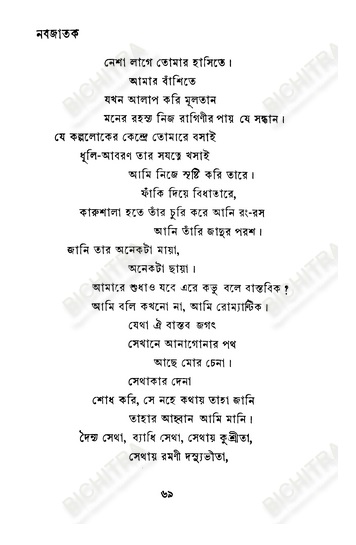 নবজাতক
নেশা লাগে তোমার হাসিতে।
আমার বাঁশিতে
যখন আলাপ করি মূলতান
মনের রহস্য নিজ রাগিণীর পায় যে সন্ধান।
যে কল্পলোকের কেন্দ্রে তোমারে বসাই
ধূলি-আবরণ তার সযত্নে খসাই
আমি নিজে সৃষ্টি করি তারে।
ফাঁকি দিয়ে বিধাতারে,
কারুশালা হতে তাঁর চুরি করে আনি রং-রস
আনি তাঁরি জাদুর পরশ।
জানি তার অনেকটা মায়া,
অনেকটা ছায়া।
আমারে শুধাও যবে এরে কভু বলে বাস্তবিক?
আমি বলি কখনো না, আমি রোম্যান্টিক।
যেথা ঐ বাস্তব জগৎ
সেখানে আনাগোনার পথ
আছে মোর চেনা।
সেথাকার দেনা
শোধ করি, সে নহে কথায় তাহা জানি
তাহার আহ্বান আমি মানি।
দৈন্য সেথা, ব্যাধি সেথা, সেথায় কুশ্রীতা,
সেথায় রমণী দস্যুভীতা,
৬৯
BICHITRA
BICHITRA
BICHITRA
BICHITRA
BICHITRA
BICHITRA